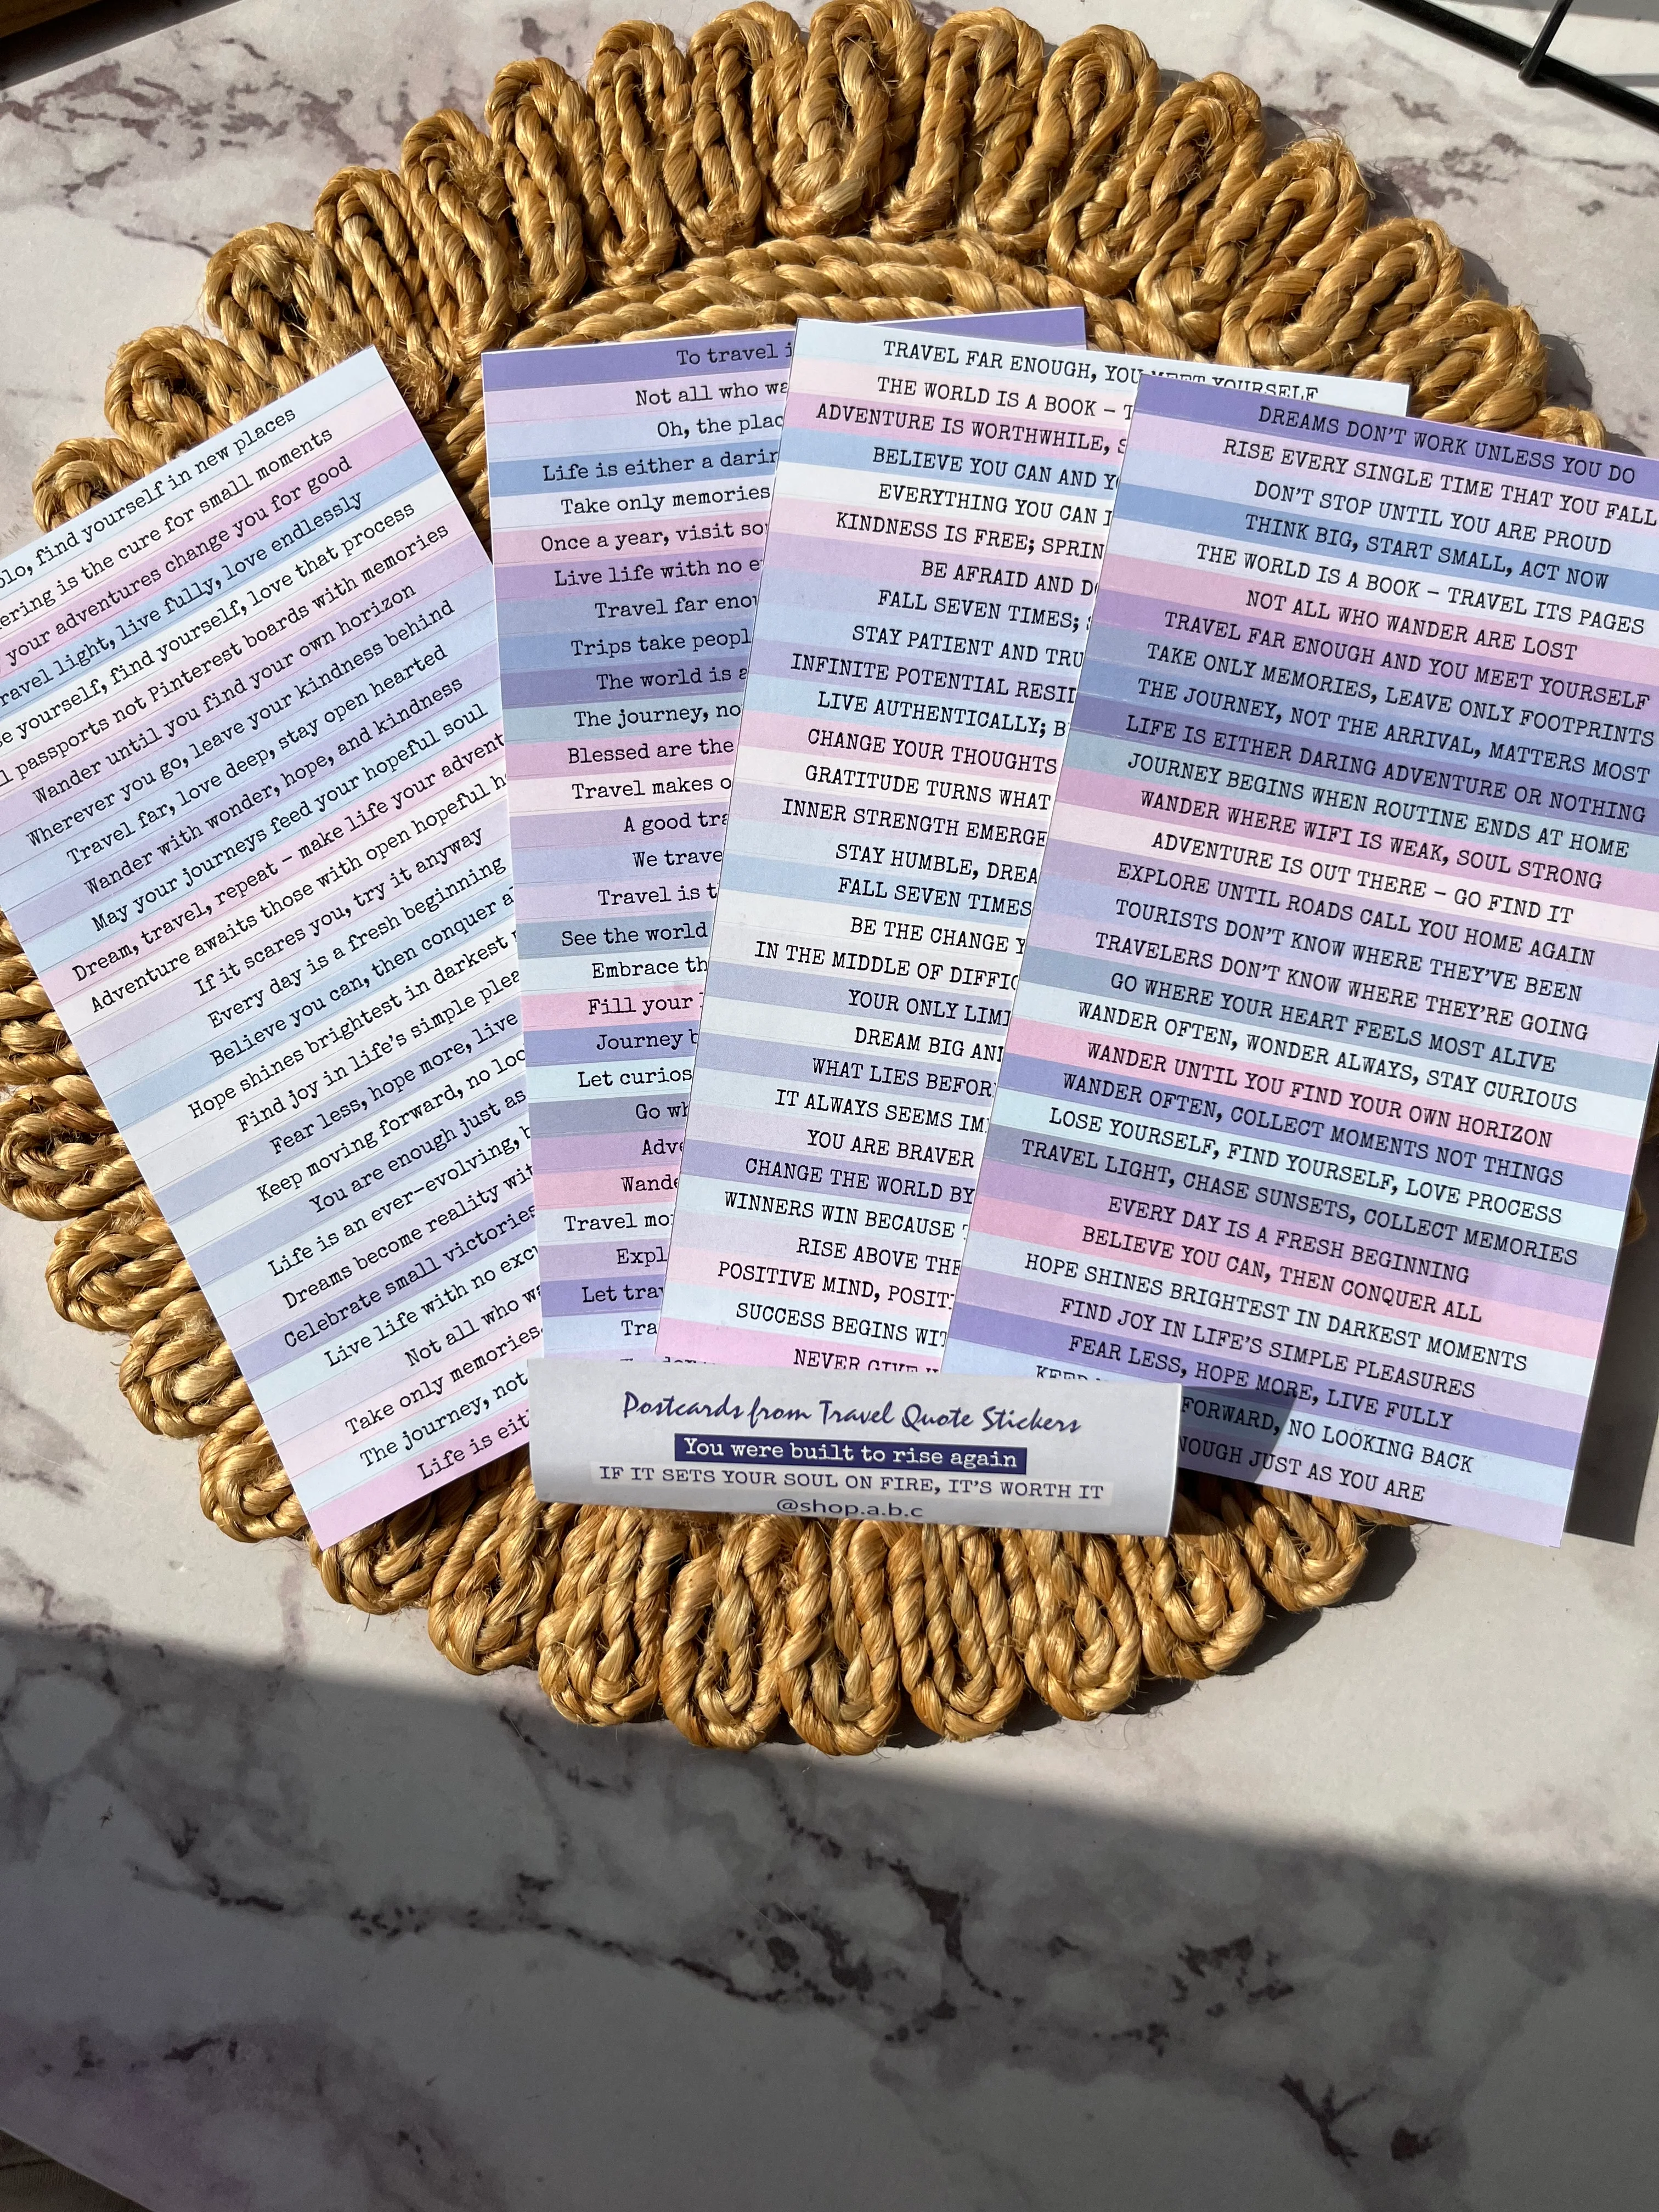 olo, find yourself in new places
ering is the cure for small moments
your adventures change you for good
ravel light, live fully, love endlessly
se yourself, find yourself, love that process
l passports not Pinterest boards with memories
Wander until you find your own horizon
Wherever you go, leave your kindness behind
Travel far, love deep, stay open hearted
Wander with wonder, hope, and kindness
May your journeys feed your hopeful soul
Dream, travel, repeat – make life your advent
Adventure awaits those with open hopeful h
If it scares you, try it anyway
Every day is a fresh beginning
Believe you can, then conquer a
Hope shines brightest in darkest
Find joy in life's simple plea
Fear less, hope more, live
Keep moving forward, no loo
You are enough just as
Life is an ever-evolving, b
Dreams become reality wit
Celebrate small victories
Live life with no exc
Not all who wa
Take only memories
The journey, not
Life is eit
To travel i
Not all who wa
Oh, the plac
Life is either a darin
Take only memories
Once a year, visit so
Live life with no e
Travel far enou
Trips take peopl
The world is a
The journey, no
Blessed are the
Travel makes o
A good tra
We trave
Travel is t
See the world
Embrace th
Fill your
Journey b
Let curios
Go wh
Adve
Wande
Travel mo
Expl
Let trav
Tra
TRAVEL FAR ENOUGH, YOU MEET YOURSELF
THE WORLD IS A BOOK – T
ADVENTURE IS WORTHWHILE, S
BELIEVE YOU CAN AND Y
EVERYTHING YOU CAN I
KINDNESS IS FREE; SPRIN
BE AFRAID AND DO
FALL SEVEN TIMES; S
STAY PATIENT AND TRU
INFINITE POTENTIAL RESI
LIVE AUTHENTICALLY; B
CHANGE YOUR THOUGHTS
GRATITUDE TURNS WHAT
INNER STRENGTH EMERGE
STAY HUMBLE, DREA
FALL SEVEN TIMES
BE THE CHANGE Y
IN THE MIDDLE OF DIFFIC
YOUR ONLY LIMI
DREAM BIG AN
WHAT LIES BEFOR
IT ALWAYS SEEMS IM
YOU ARE BRAVER
CHANGE THE WORLD BY
WINNERS WIN BECAUSE T
RISE ABOVE THE
POSITIVE MIND, POSIT
SUCCESS BEGINS WIT
NEVER GIVE
DREAMS DON'T WORK UNLESS YOU DO
RISE EVERY SINGLE TIME THAT YOU FALL
DON'T STOP UNTIL YOU ARE PROUD
THINK BIG, START SMALL, ACT NOW
THE WORLD IS A BOOK – TRAVEL ITS PAGES
NOT ALL WHO WANDER ARE LOST
TRAVEL FAR ENOUGH AND YOU MEET YOURSELF
TAKE ONLY MEMORIES, LEAVE ONLY FOOTPRINTS
THE JOURNEY, NOT THE ARRIVAL, MATTERS MOST
LIFE IS EITHER DARING ADVENTURE OR NOTHING
JOURNEY BEGINS WHEN ROUTINE ENDS AT HOME
WANDER WHERE WIFI IS WEAK, SOUL STRONG
ADVENTURE IS OUT THERE – GO FIND IT
EXPLORE UNTIL ROADS CALL YOU HOME AGAIN
TOURISTS DON'T KNOW WHERE THEY'VE BEEN
TRAVELERS DON'T KNOW WHERE THEY'RE GOING
GO WHERE YOUR HEART FEELS MOST ALIVE
WANDER OFTEN, WONDER ALWAYS, STAY CURIOUS
WANDER UNTIL YOU FIND YOUR OWN HORIZON
WANDER OFTEN, COLLECT MOMENTS NOT THINGS
LOSE YOURSELF, FIND YOURSELF, LOVE PROCESS
TRAVEL LIGHT, CHASE SUNSETS, COLLECT MEMORIES
EVERY DAY IS A FRESH BEGINNING
BELIEVE YOU CAN, THEN CONQUER ALL
HOPE SHINES BRIGHTEST IN DARKEST MOMENTS
FIND JOY IN LIFE'S SIMPLE PLEASURES
FEAR LESS, HOPE MORE, LIVE FULLY
KEEP FORWARD, NO LOOKING BACK
NOUGH JUST AS YOU ARE
Postcards from Travel Quote Stickers
You were built to rise again
IF IT SETS YOUR SOUL ON FIRE, IT'S WORTH IT
@shop.a.b.c